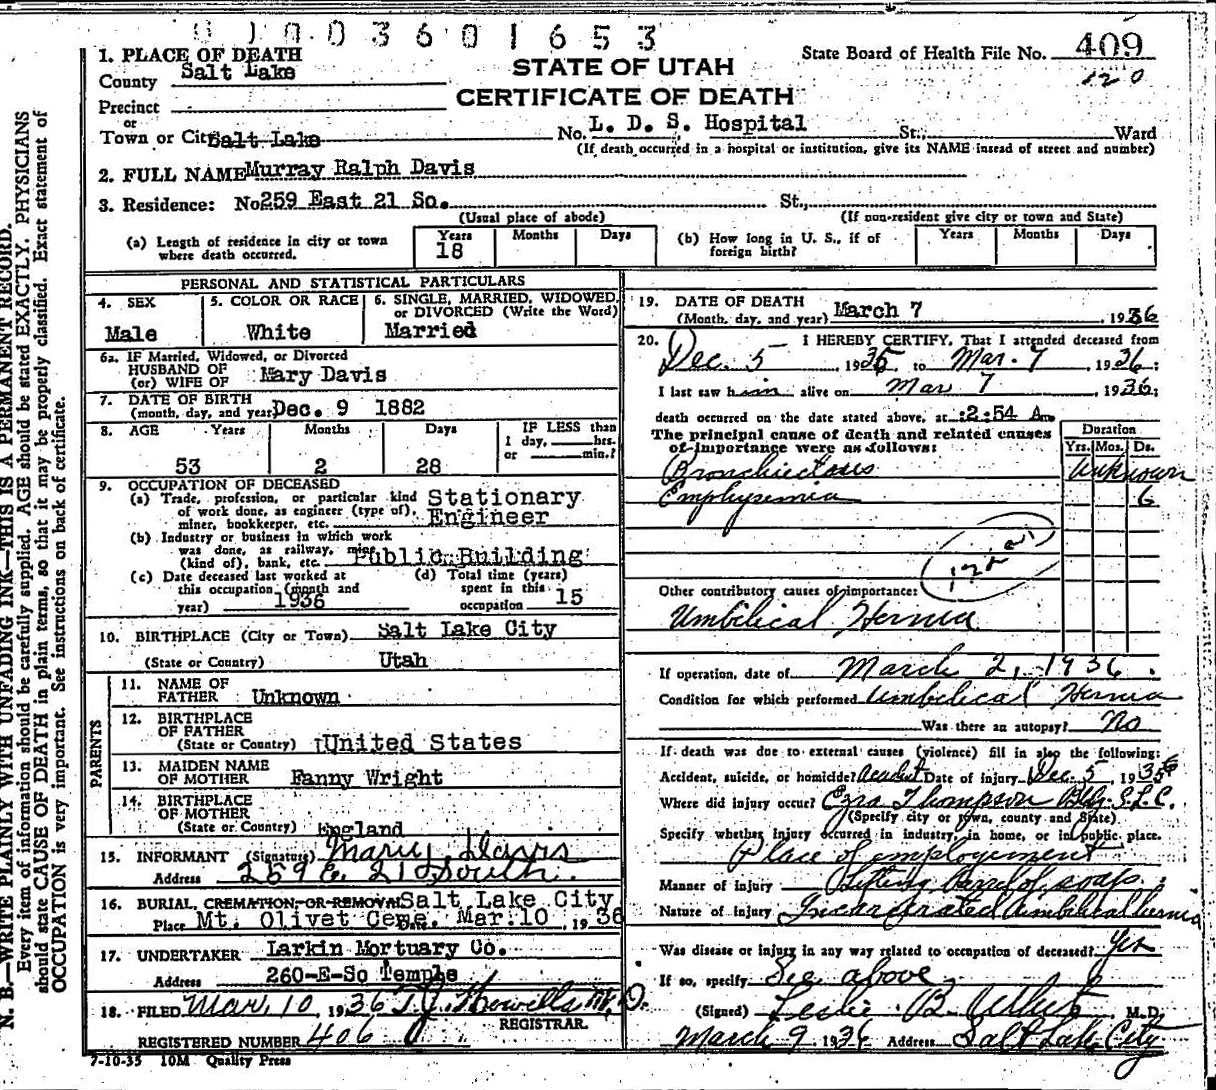 01003601653
1. PLACE OF DEATH
State Board of Health File No. 409
120
County Salt Lake
STATE OF UTAH
CERTIFICATE OF DEATH
Precinct
or
Town or City Salt Lake No. L. D. S. Hospital St., Ward
(If death occurred in a hospital or institution, give its NAME insead of street and number)
2. FULL NAME Murray Ralph Davis
3. Residence: No 259 East 21 So. St.,
(Usual place of abode) (If non-resident give city or town and State)
(a) Length of residence in city or town where death occurred. Years 18 Months Days
(b) How long in U. S., if of foreign birth? Years Months Days
PERSONAL AND STATISTICAL PARTICULARS
4. SEX Male
5. COLOR OR RACE White
6. SINGLE, MARRIED, WIDOWED, or DIVORCED (Write the Word) Married
6a. IF Married, Widowed, or Divorced
HUSBAND OF
(or) WIFE OF Mary Davis
7. DATE OF BIRTH
(month, day, and year) Dec. 9 1882
8. AGE Years Months Days IF LESS than
1 day, hrs.
or min.?
53 2 28
9. OCCUPATION OF DECEASED
(a) Trade, profession, or particular kind of work done, as engineer (type of), miner, bookkeeper, etc. Stationary Engineer
(b) Industry or business in which work was done, as railway, mine (kind of), bank, etc. Public Building
(c) Date deceased last worked at this occupation (month and year) 1936
(d) Total time (years) spent in this occupation 15
10. BIRTHPLACE (City or Town) Salt Lake City
(State or Country) Utah
PARENTS
11. NAME OF FATHER Unknown
12. BIRTHPLACE OF FATHER
(State or Country) United States
13. MAIDEN NAME OF MOTHER Fanny Wright
14. BIRTHPLACE OF MOTHER
(State or Country) England
15. INFORMANT (Signature) Mary Davis
Address 259 E. 21 South.
16. BURIAL, CREMATION, OR REMOVAL Salt Lake City
Place Mt. Olivet Ceme. Date Mar. 10, 1936
17. UNDERTAKER Larkin Mortuary Co.
Address 260-E-So Temple
18. FILED Mar. 10, 1936 T. J. Howells M. D.
REGISTRAR.
REGISTERED NUMBER 406
7-10-35 10M Quality Press
19. DATE OF DEATH
(Month, day, and year) March 7, 1936
20. I HEREBY CERTIFY, That I attended deceased from
Dec. 5, 1935, to Mar. 7, 1936;
I last saw him alive on Mar 7, 1936;
death occurred on the date stated above, at 2:54 Am
The principal cause of death and related causes of importance were as follows: Duration
Yrs. Mos. Ds.
Unknown
Emphysemia 6
Other contributory causes of importance:
Umbilical Hernia
If operation, date of March 2, 1936.
Condition for which performed Umbilical Hernia
Was there an autopsy? No
If death was due to external causes (violence) fill in also the following:
Accident, suicide, or homicide? Accident Date of injury Dec. 5 1935
Where did injury occur? Ezra Thompson Bldg. S.L.C.
(Specify city or town, county and State)
Specify whether injury occurred in industry, in home, or in public place.
Place of employement
Manner of injury Lifting barrel of soap.
Nature of injury Incarcerated Umbilical hernia
Was disease or injury in any way related to occupation of deceased? Yes
If so, specify See above
(Signed) Leslie B. M.D.
March 9, 1936 Address Salt Lake City
N. B.—WRITE PLAINLY WITH UNFADING INK—THIS IS A PERMANENT RECORD.
Every item of information should be carefully supplied. AGE should be stated EXACTLY. PHYSICIANS
should state CAUSE OF DEATH in plain terms, so that it may be properly classified. Exact statement of
OCCUPATION is very important. See instructions on back of certificate.